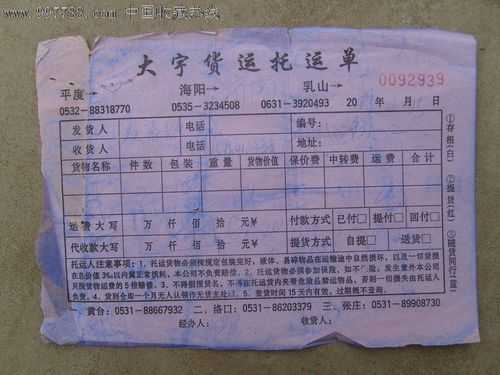 www.997788.com 中国收藏热线
大宇货运托运单
平度→ 海阳→ 乳山→ 0092939
0532-88318770 0535-3234508 0631-3920493 20 年 月 日
发货人 电话 编号:
收货人 电话 地址:
货物名称 件数 包装 重量 货物价值 保价费 中转费 运费 合计
运费大写 万 仟 佰 拾 元¥ 付款方式 已付□ 提付□ 回付□
代收款大写 万 仟 佰 拾 元¥ 提货方式 自提□ 送货□
①存根(白) ②提货(红) ③随货同行(蓝)
托运人注意事项:1、托运货物必须按规定包装完好,液体、易碎物品在运输途中自然损坏,以及一切货损
在B价值3%以内属正常损耗,本公司不负责赔偿。2、托运货物必须参加保险,如不保险,发生意外本公司
只按货物运费的5倍赔偿。3、不得捎报货名,不准在托运货内夹带危险品禁运物品,否则一切损失由托运人
负责。4、货到全部一个月无人认领作无货主处理。5、查货时间15天内有效,过期概不查询。
一、黄台:0531-88667932 二、洛口:0531-86203379 三、张庄:0531-89908730
经办人: 收货人: